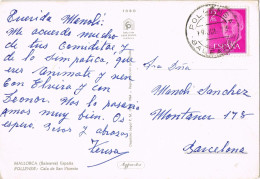 1959
Querida Menchi:
Me acuerdo mucho
de tus Comiditas y
de lo simpatica, que
eres animate y ven
con Elvira y con
Leonor. Nos lo pasaria
amos muy bien. Os
espero. Besos y abrazos
Teresa
MALLORCA (Baleares) España
POLLENSA: Cala de San Vicente
POLLENSA
ESPAÑA
Srta Doña
Menchi Sanchez
Montaner 178
Barcelona